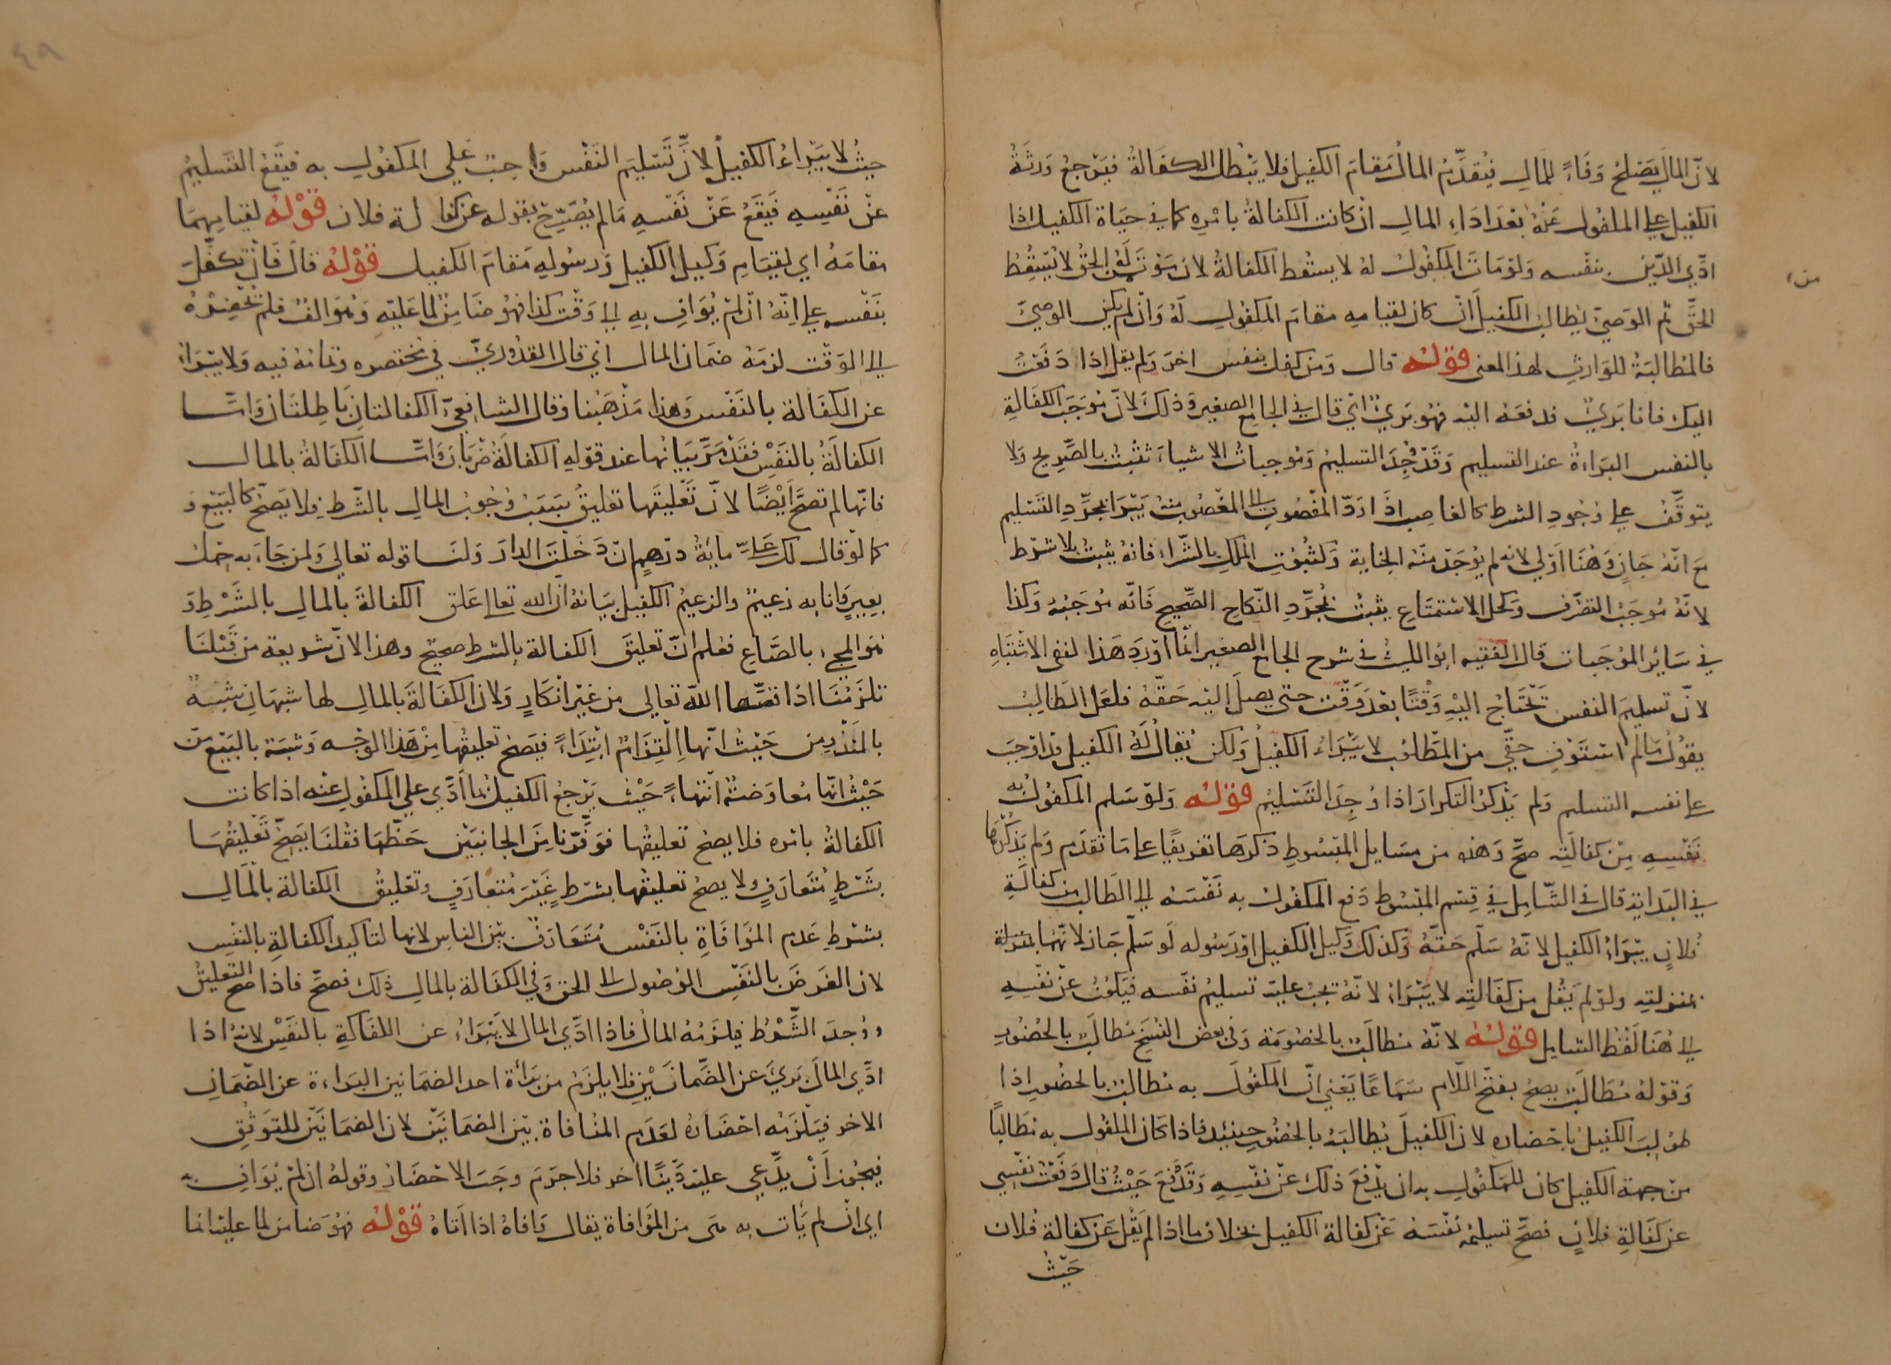 لانّ المالَ يَصْلحُ وَفَاءً للمالِ فيُقدَّمُ المالُ مَقامَ الكفيلِ فلا يَبْطل الكفَالةُ فيَرجعُ وَرثَةُ
الكفيل على المكفول عَنهُ بعْدَ ادَاءِ المالِ ان كانت الكفالةُ بامْرِه كما في حيَاة الكفيل اذا
ادّي الدّين بنفسه وَلوْ مَاتَ المكفولُ لهُ لا يسقط الكفالةُ لان مَوْتَ مَنْ لَهُ الحقُّ لا يُسْقِطُ
من
الحقَّ ثم الوَصيّ يُطالِبُ الكفيلَ انْ كان لقيامِهِ مقامَ المكفولِ لَهُ وَانْ لم يكن الوصيّ
فالمُطالبَةُ للوَارثِ لهذا المعنى قوْلهُ قال وَمن كفل بنفس اخرَ وَلم يقل اذا دَفعْتُ
اليك فانا بَريٌ فدفعَهُ اليْه فهوَ بَريٌ اي قال في الجامع الصغير وَذلكَ لانّ مُوجَبَ الكفالةِ
بالنفس البرَاءةُ عند التسليم وَقَدْ وُجِدَ التسليمُ وَمُوجباتُ الاشياءِ تثبُتُ بالصّريح وَلا
يتوقّفُ على وُجودِ الشرطِ كالغاصِب اذَا رَدّ المغصُوبَ الى المغصُوب منهُ يَبرَأ بمجرّدِ التَسْليم
مع انّهُ جَانٍ وَهُنَا اوْلي لانه لم يُوجَدْ منْهُ الجناية وَكثبُوتِ الملكِ بالشراءِ فانهُ يثبُتُ بلا شرْط
لانّهُ مُوجَبُ التصرّف وَكحل الاسْتمتاعِ يثبتُ بمجرّدِ النّكاحِ الصّحيحِ فانّهُ مُوجَبُهُ وَكذا
في سَايرِ المُوجَبات قال الفقيه ابو الليث في شرح الجامع الصغير انّما اوْرَدَ هَذا لنفي الاشتبَاهِ
لانّ تسليمَ النفس تَحْتَاجُ اليْهِ وَقْتًا بعْدَ وَقْت حتى يصلَ اليْه حَقّهُ فلعَل الطالِبُ
يقوْلُ مَالمْ اسْتَوْفِ حَقّي من المطلوْب لا يَبْرَاءُ الكفيلُ وَلكن يُقالُ لهُ الكفيل قد اوْجَبَ
على نفسه التسليم وَلم يَذْكُرِ التكرارَ اذا وُجِدَ التَسْليمُ قوْلهُ وَلوْ سَلم المكفولُ به
نَفْسِهِ مِنْ كفالَتِه صحّ وَهذه من مسَايل المَبْسُوطِ ذكرَها تفريعًا على مَا تقدّم وَلم يَذْكُرْهَا
في البدَاية قال في الشّامِل في قِسْم المبْسُوط دَفع المكفولُ به نَفْسَهُ الى الطَالب من كفالةِ
فُلانٍ يَبْرَاءُ الكفيل لانّهُ سَلّم حَقّهُ وَكذلك وَكيل الكفيل اوْ رَسُوله لوْ سَلّم جَاز لانّهُمَا بمنزلة
بمنزلتِه ولوْ لم يَقُل من كفَالتِه لا يَبْرَاءُ لانّهُ تجبُ عليْه تسليمُ نفسه فيَكونُ عنْ نفْسِهِ
الى هُنَا لفْظُ الشامل قوْلهُ لانّهُ مُطالَبٌ بالخصُومَة وَفي بعض النُّسَخ مُطالَبٌ بالحُضُورِ
وَقوْلهُ مُطَالَبٌ يصح بفتحِ اللّامِ سَمَاعًا يَعْني انّ المكفولَ به مُطالبٌ بالحضُورِ اذا
طُولِبَ الكفيلُ باحْضَاره لان الكفيلَ يُطالبُهُ بالحضُورِ حينَيْذ فاذا كان المكفول به مُطَالَبًا
من جهة الكفيل كان للمكفولِ به ان يدْفعَ ذلك عنْ نفْسِهِ وَقَدْ دَفَعَ حَيْثُ قال دَفَعْتُ نَفْسي
عن كَفَالةِ فلانٍ فصَحّ تسليمُهُ نَفْسَهُ عَنْ كفالة الكفيل بخلاف ما اذا لم يَقُل عَن كفالة فُلان
حَيْثُ
حيثُ لا يَبْرَاءُ الكفيلُ لانّ تَسْليمَ النَفْس وَاجبٌ عَلي المكفُولِ به فيَقَعُ التَسليمُ
عنْ نَفْسِهِ فيَقَعُ عَنْ نَفْسِهِ مَالم يُصَرّحْ بقوله عن كفالة فلان قوْلهُ لقيامِهمَا
مقامَهُ اي لقِيَامِ وَكيل الكفيل وَرسُولهِ مَقامَ الكفيل قوْلهُ قال فَانْ تَكفَّلَ
بنَفْسه على انّهُ انْ لمْ يُوَافِ بهِ الى وَقْت كذا فهُوَ ضَامِنٌ لما عَليْه وَهُوَ الفٌ فلم يُحْضِرْهُ
الى الوَقْت لزمَهُ ضمَان المال اي قال القُدوريّ في مُختصره وتمامُهُ فيه وَلا يَبْرَاءُ
عن الكفَالة بالنَفْس وَهذا مَذْهَبُنا وقال الشافعيّ الكفالتانِ بَاطِلتَانِ وَامّا
الكفالَةُ بالنَفْسِ فقَدْ مَرّ بَيَانُها عند قوْلهِ الكفالةُ ضرْبَانِ وَامّا الكفالةُ بالمال
فانّها لم تصحّ ايْضًا لانّ تَعْليقَها تعليقُ سَبَبِ وُجُوبِ المالِ بالشّرطِ فلا يَصحّ كالبَيْعِ وَ
كما لوْ قال لك عَليّ مايةُ درْهمٍ انْ دَخَلْتَ الدارَ وَلنَا قوله تعالي وَلمن جَاءَ به حِمْل
بعيرٍ وَانا به زعيمٌ والزعيمُ الكفيل بيَانهُ انّ الله تعالى عَلق الكفالةَ بالمالِ بالشَرْطِ وَ
هُوَ المجيء بالصّاعِ فعُلم انّ تعليقَ الكفالة بالشرط صحيحٌ وهذا لانّ شريعة من قَبْلنَا
تلزمُنَا اذا قصّها الله تعالي من غيْر انْكارٍ وَلان الكفالةَ بالمال لها شبهَانِ شَبَهٌ
بالنّذْرِ من حَيْثُ انّها الْتِزَامٌ ابْتِدَاءً فيَصحّ تعليقُها منْ هَذا الوَجْه وَشبَهٌ بالبَيْع من
حَيْثُ انّها مُعاوَضةٌ انْتهَاءً حَيْث يَرْجعُ الكفيلُ بما ادّي علي المكفولِ عنْه اذا كانت
الكفالةُ بامْره فلا يصحّ تعليقُها فوَفّرْنا منَ الجانبَيْن حَظّهَا فقُلنَا يَصحّ تَعْليقُهَا
بشَرْطٍ مُتَعَارَفٍ وَلا يصحّ تعليقُها بشرْطٍ غَيْرِ مُتعارَفٍ وتعْليقُ الكفالة بالمَالِ
بشرْطِ عَدمِ المُوَافَاةِ بالنَفْسِ مُتَعَارَفٌ بيْن الناس لانها لتاكيد الكفالةِ بالنَفْسِ
لان الغَرضَ بالنَفْسِ الوُصُول الى الحق وَفي الكفَالة بالمالِ ذلك فصَحّ فاذا صَحّ التعليقُ
ووُجدَ الشَّرْطُ فيلزَمُهُ المالُ فاذا ادّي المال لا يَبْرَاءُ عن الكفَالةِ بالنَفْس لانهُ اذا
ادّي المال بَريَ عن الضّمانَيْنِ فلا يلزمُ من بَرَأةِ احد الضمانين البَراءة عن الضّمَانِ
الاخر فيَلْزَمُه احْضَارُهُ لعَدمِ المُنافاة بَيْنَ الضمَانَيْن لان الضمَانَيْنِ للتوَثّقِ
فيجُوز اَنْ يدّعي عليْه دَيْنًا اخر فلا جرَمَ وجَبَ الاحْضَارُ وقوْلهُ ان لمْ يُوَافِ به
اي انْ لم يَأت به هي من المُوَافاة يقال وَافاهُ اذا اَتاهُ قوْلهُ فهُوَ ضامن لما عليْه انما